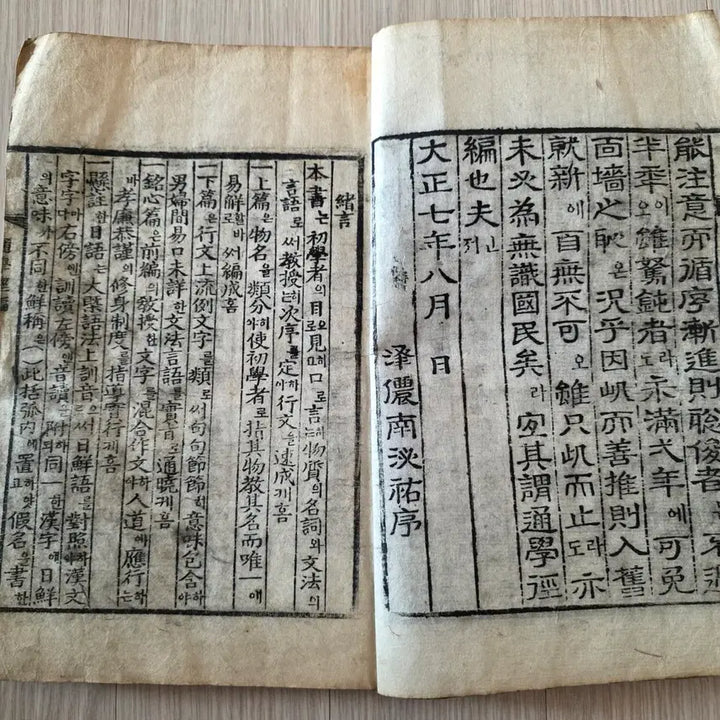 能注意而循序漸進則聰俊者 不過
半年이오雖駑鈍者라도未滿弌年에可免
面墻之恥온況乎因此而善推則入舊
就新에百無不可오雖只此而止라도亦
未必為無識國民矣라宜其謂通學徑
編也夫인저
大正七年八月 日
澤儂南泌祐序
緒言
本書는初學者의目으로見히口로言는物質의名詞와文法의
言語로써敎授는次序를定하야行文을速成케홈
一上篇은物名을類分야使初學者로指其物敎其名而唯一애
易解할바로써編成홈
一下篇은行文上流例文字를類로써句句節節히意味包含하야
男婦間易口未詳한文法言語를 通曉케홈
一銘心篇은前編의敎授한文字를混合作文하야人道에應行하는
바孝廉恭謹의修身制度를指導實行케홈
一懸註한日語는大槩語法上訓音으로써日鮮語를對照하야漢文
字字마다右傍엔訓讀左傍엔音讀을附하되同一한漢字에日鮮
의意味가不同한鮮稱은( )此括弧內에置하고 假名을書한